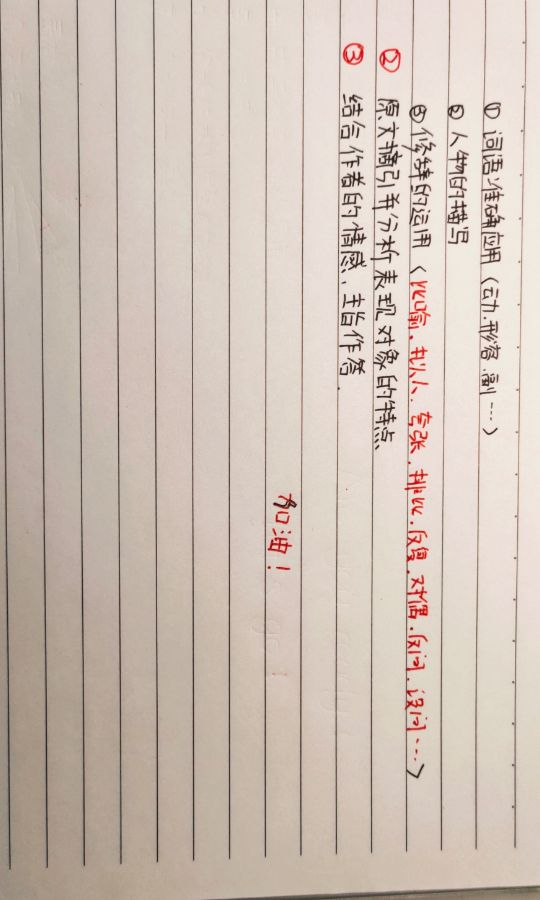 ① 词语准确应用（动.形容.副…）
② 人物的描写
③ 修辞的运用（比喻.拟人.夸张.排比.反复.对偶.反问.设问…）
② 原文摘引并分析表现对象的特点
③ 结合作者的情感、主旨作答.
加油！